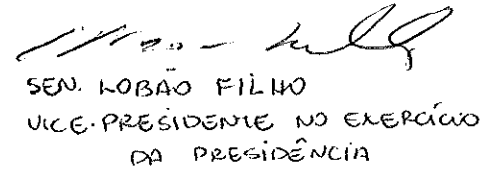 SEN. LOBÃO FILHO
VICE-PRESIDENTE NO EXERCÍCIO
DA PRESIDÊNCIA